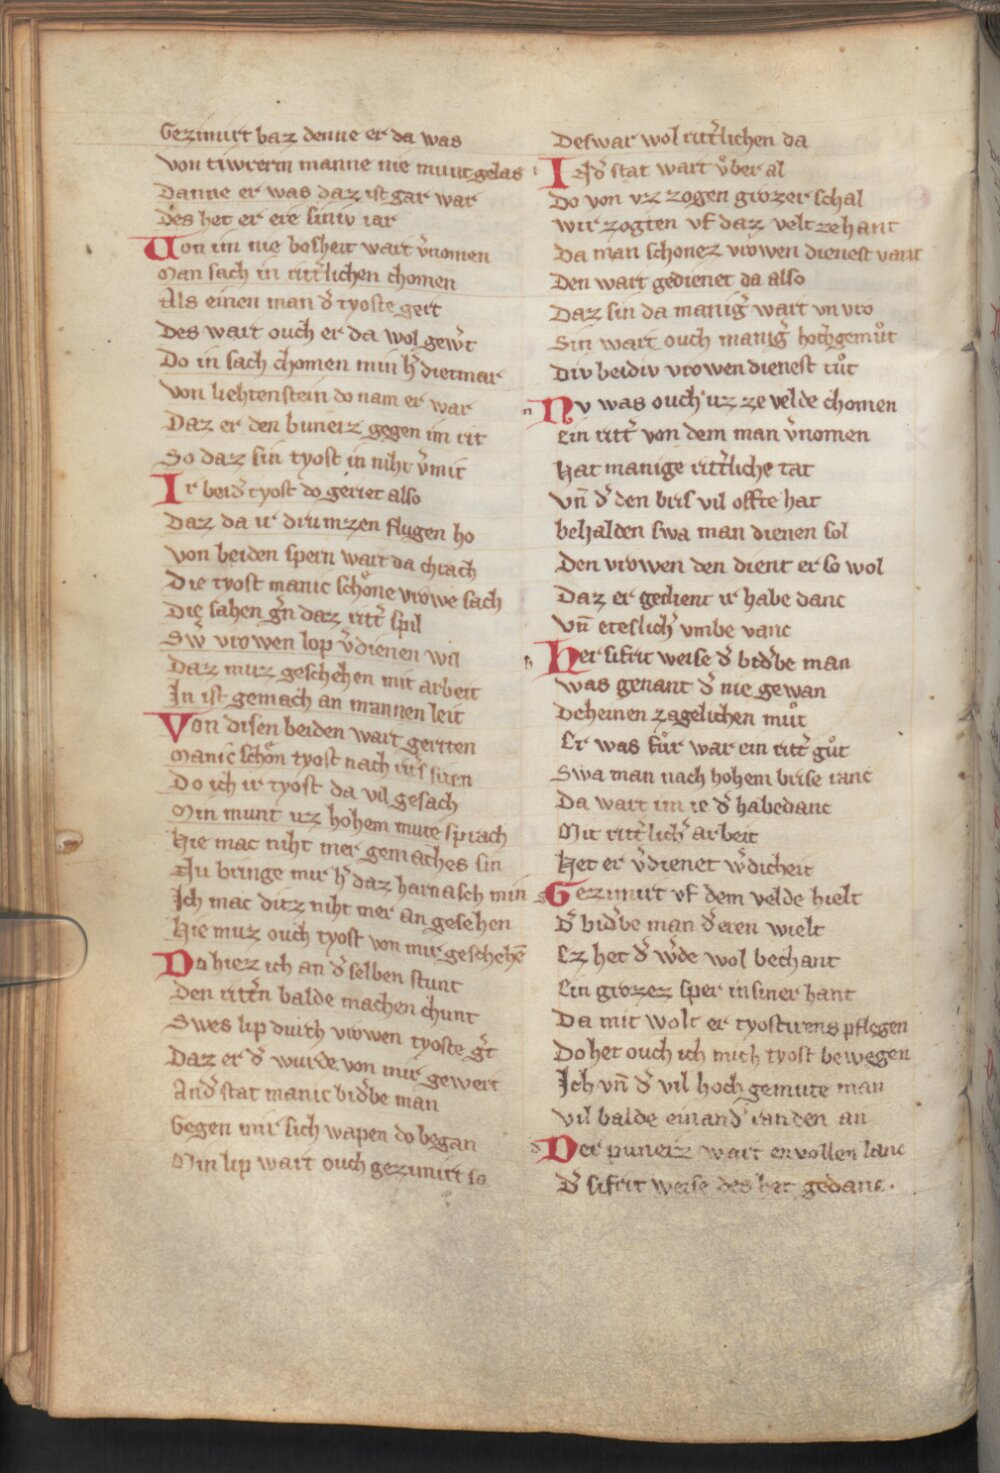 Gezimirt baz denne er da was
von tiwrerm manne nie munt gelas
Danne er was daz ist gar war
des het er ere siniv iar
Uon im nie bosheit wart v̾nomen
Man sach in ritt̾lichen chomen
Als einen man d̾ tyoste gert
Des wart ouch er da wol gew̾t
Do in sach chomen min h̾ dietmar
von liehtenstein do nam er war
Daz er den buneiz gegen im rit
So daz sin tyost in niht v̾mit
Ir beid̾ tyost do geriet also
Daz da ir drumzen flugen ho
von beiden spern wart da chrach
Die tyost manic schoͤne vrowe sach
Die sahen g̾n daz ritt̾ spil
Sw̾ vrowen lop v̾dienen wil
Daz muz geschehen mit arbeit
In ist gemach an mannen leit
Von disen beiden wart geriten
Manic schoͤn tyost nach rit̾s siten
Do ich ir tyost da vil gesach
Min munt uz hohem mute sprach
Hie mac niht mer gemaches sin
Nu bringe mir h̾ daz harnasch min
Ich mac ditz niht mer an gesehen
Hie muz ouch tyost von mir geschehē
Do hiez ich an d̾ selben stunt
Den ritt̾n balde machen chunt
Swes lip durch vrowen tyoste g̾t
Daz er d̾ wurde von mir gewert
And̾ stat manic bid̾be man
Gegen mir sich wapen do began
Min lip wart ouch gezimirt sa
Deswar wol ritt̾lichen da
I And̾ stat wart vͤber al
Do von vz zogen grozer schal
wir zogten vf daz velt zehant
Da man schonez vrowen dienest vant
Den wart gedienet da also
Daz sin da manig̾ wart vn vro
Sin wart ouch manig̾ hochgemuͦt
Div beidiv vrowen dienest tuͦt
Nv was ouch uz ze velde chomen
Ein ritt̾ von dem man v̾nomen
Hat manige ritt̾liche tat
Vn̄ d̾ den bris vil offte hat
behalden swa man dienen sol
Den vrowen den dient er so wol
Daz er gedient ir habe danc
Vn̄ eteslich̾ vmbe vanc
Her sifrit weise d̾ bid̾be man
was genant d̾ nie gewan
Deheinen zagelichen muͦt
Er was fuͤr war ein ritt̾ guͦt
Swa man nach hohem brise ranc
Da wart im ie d̾ habedanc
Mit ritt̾lich̾ arbeit
Het er v̾dienet w̾dicheit
Gezimirt vf dem velde hielt
D̾ bid̾be man d̾ eren wielt
Ez het d̾ w̾de wol bechant
Ein grozez sper in siner hant
Da mit wolt er tyostirens pflegen
Do het ouch ich mich tyost bewegen
Ich vn̄ d̾ vil hoch gemute man
Vil balde einand̾ randen an
Der puneiz wart envollen lanc
D̾ sifrit weise des het gedanc.